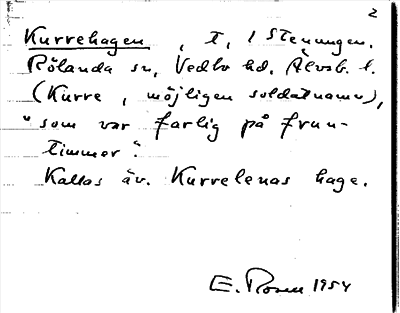 2
Kurrehagen, t, i Stenungen.
Rölanda sn, Vedbo hd, Älvsb. l.
(Kurre, möjligen soldatnamn),
"som var farlig på frun-
timmer".
Kallas äv. Kurrelenas hage.
E. Rosen 1954